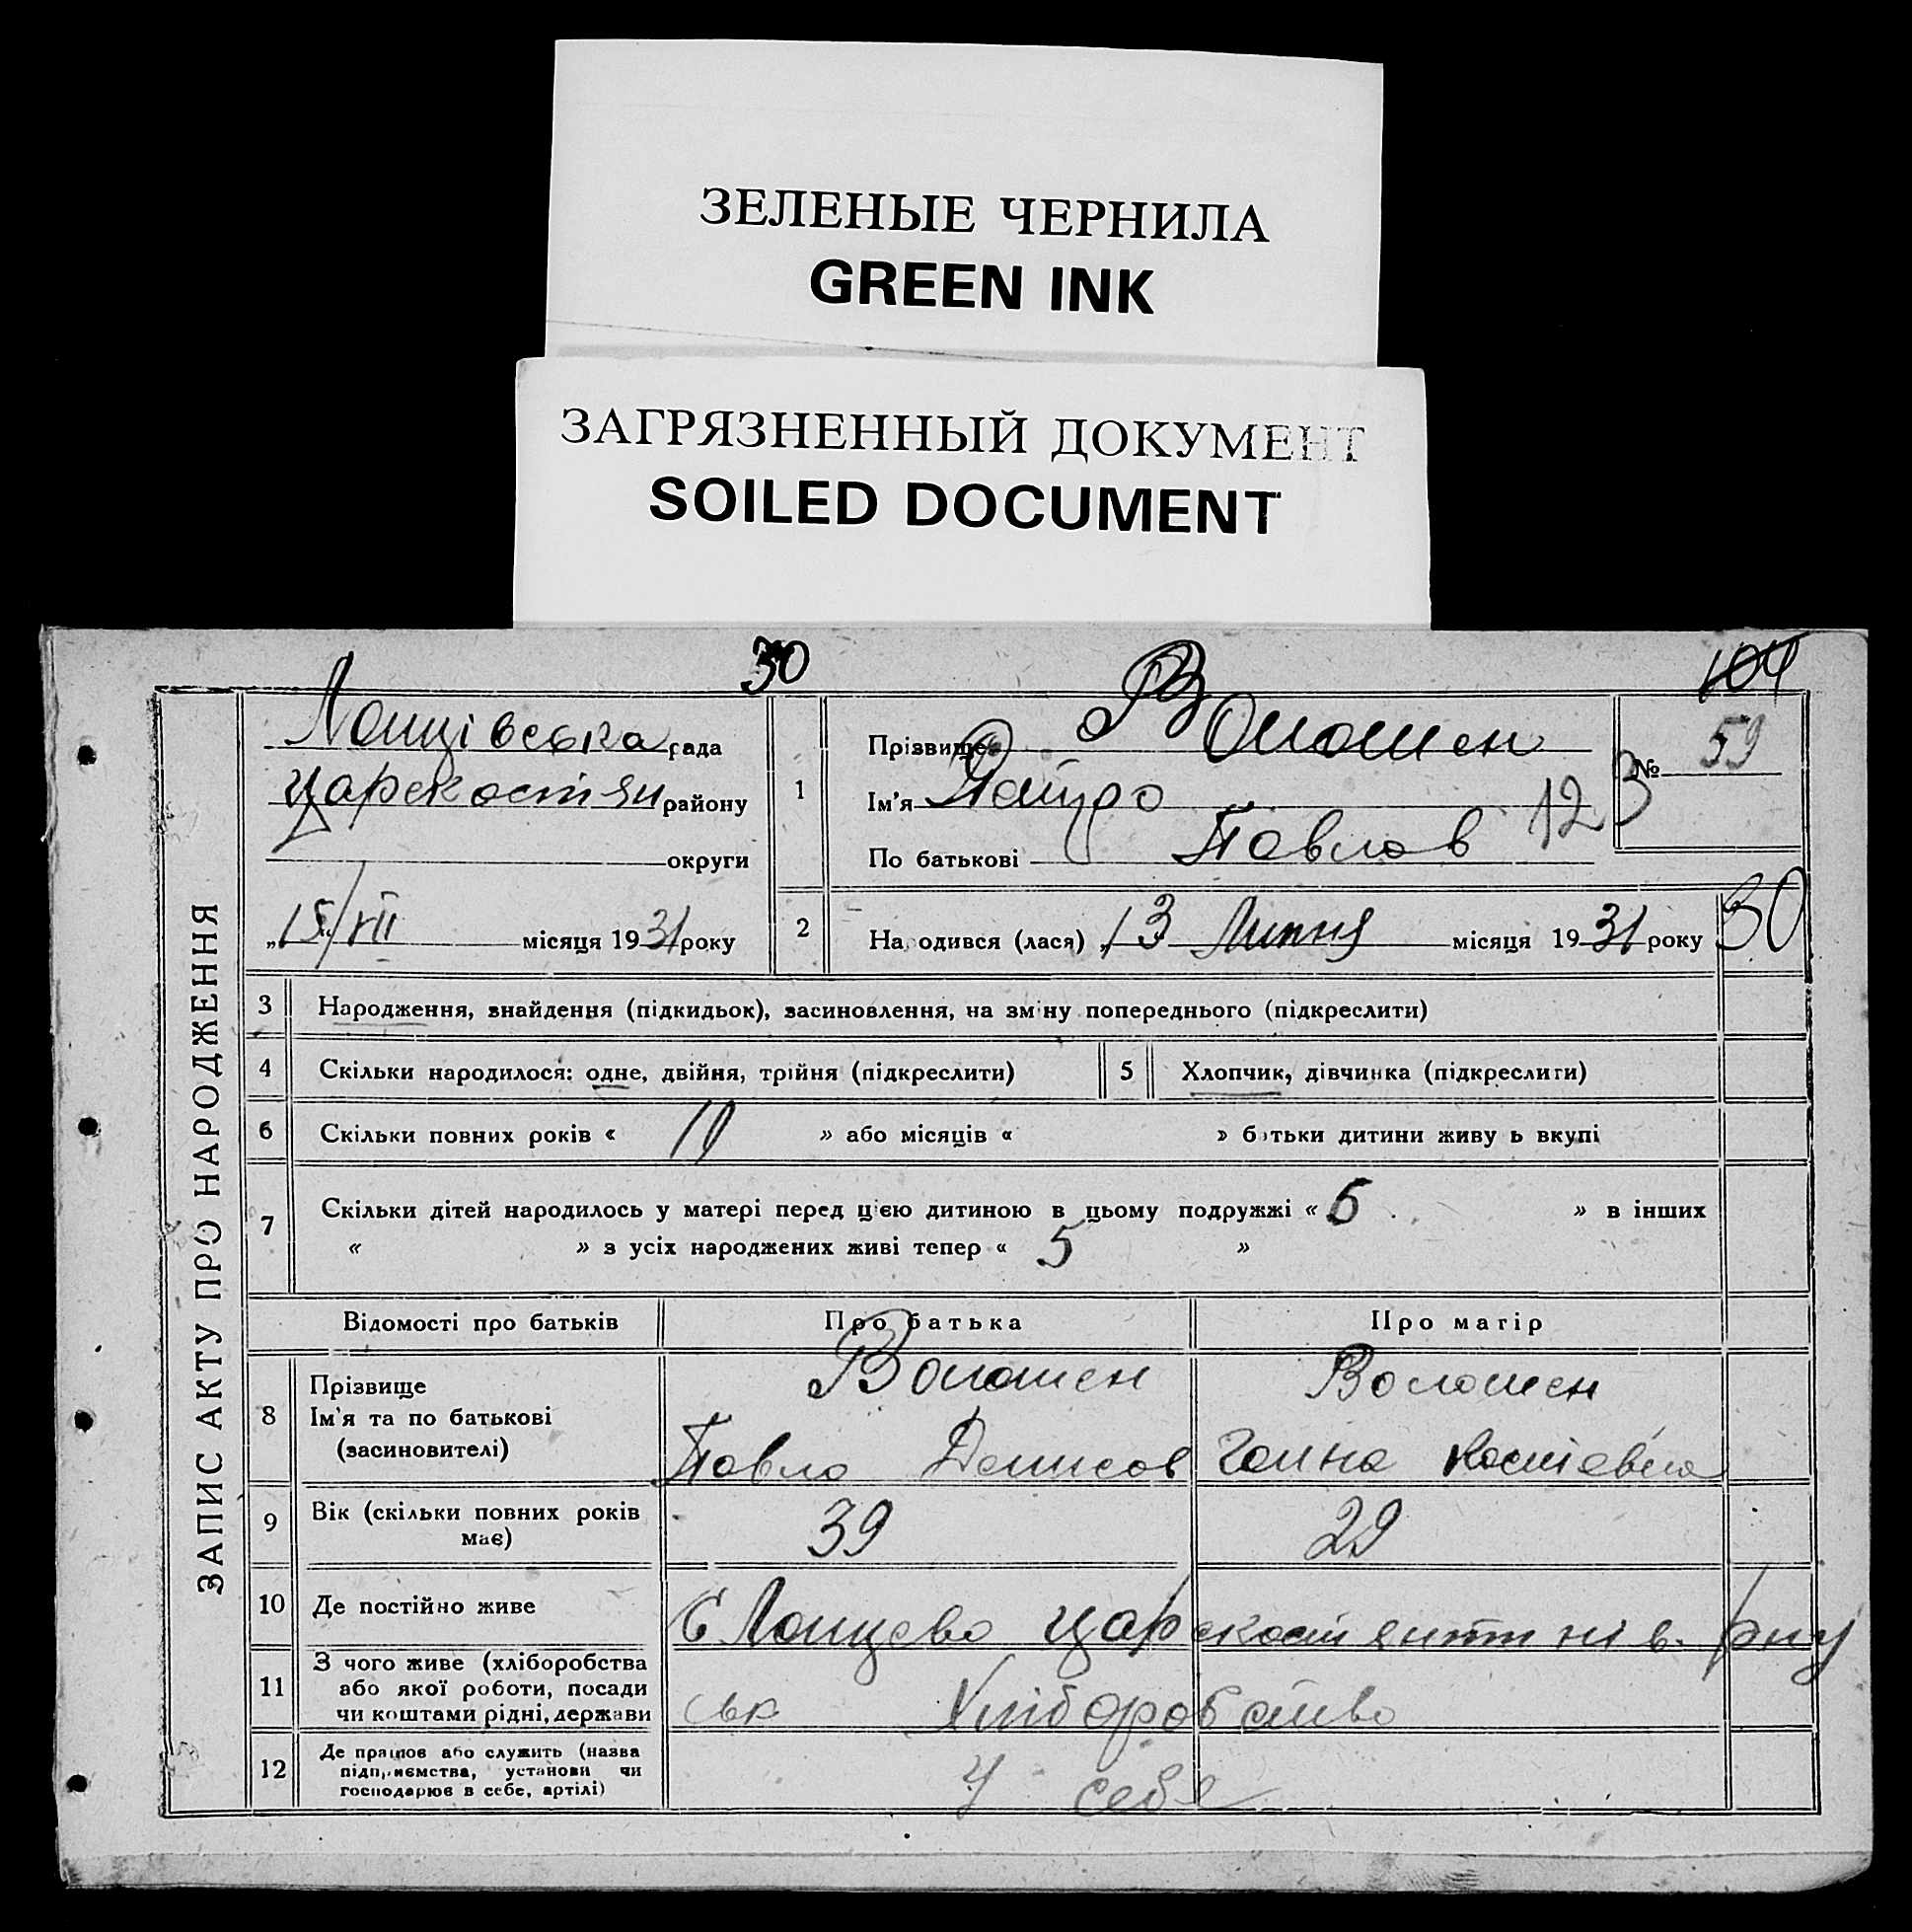 ЗЕЛЕНЫЕ ЧЕРНИЛА
GREEN INK
ЗАГРЯЗНЕННЫЙ ДОКУМЕНТ
SOILED DOCUMENT
30
104
ЗАПИС АКТУ ПРО НАРОДЖЕННЯ
Ланцівська рада
Царекостян району
округи
„15/VII місяця 1931 року
1
Прізвище Волошен
Ім'я
По батькові Павлов
123
№ 59
2
Народився (лася) „13 Липня місяця 1931 року
30
3 Народження, знайдення (підкидьок), засиновлення, на зміну попереднього (підкреслити)
4 Скільки народилося: одне, двійня, трійня (підкреслити)
5 Хлопчик, дівчинка (підкреслити)
6 Скільки повних років « 10 » або місяців « » батьки дитини живуть вкупі
7 Скільки дітей народилось у матері перед цією дитиною в цьому подружжі « 5 » в інших
« » з усіх народжених живі тепер « 5 »
Відомості про батьків Про батька Про матір
8 Прізвище Волошен Волошен
Ім'я та по батькові
(засиновителі) Павло Денисов Ганна Костевна
9 Вік (скільки повних років
має) 39 29
10 Де постійно живе С Ланцево Царекостянтинів. рну
11 З чого живе (хліборобства
або якої роботи, посади
чи коштами рідні, держави ськ Хліборобство
12 Де працює або служить (назва
підприємства, установи чи
господарює в себе, артілі) У себе